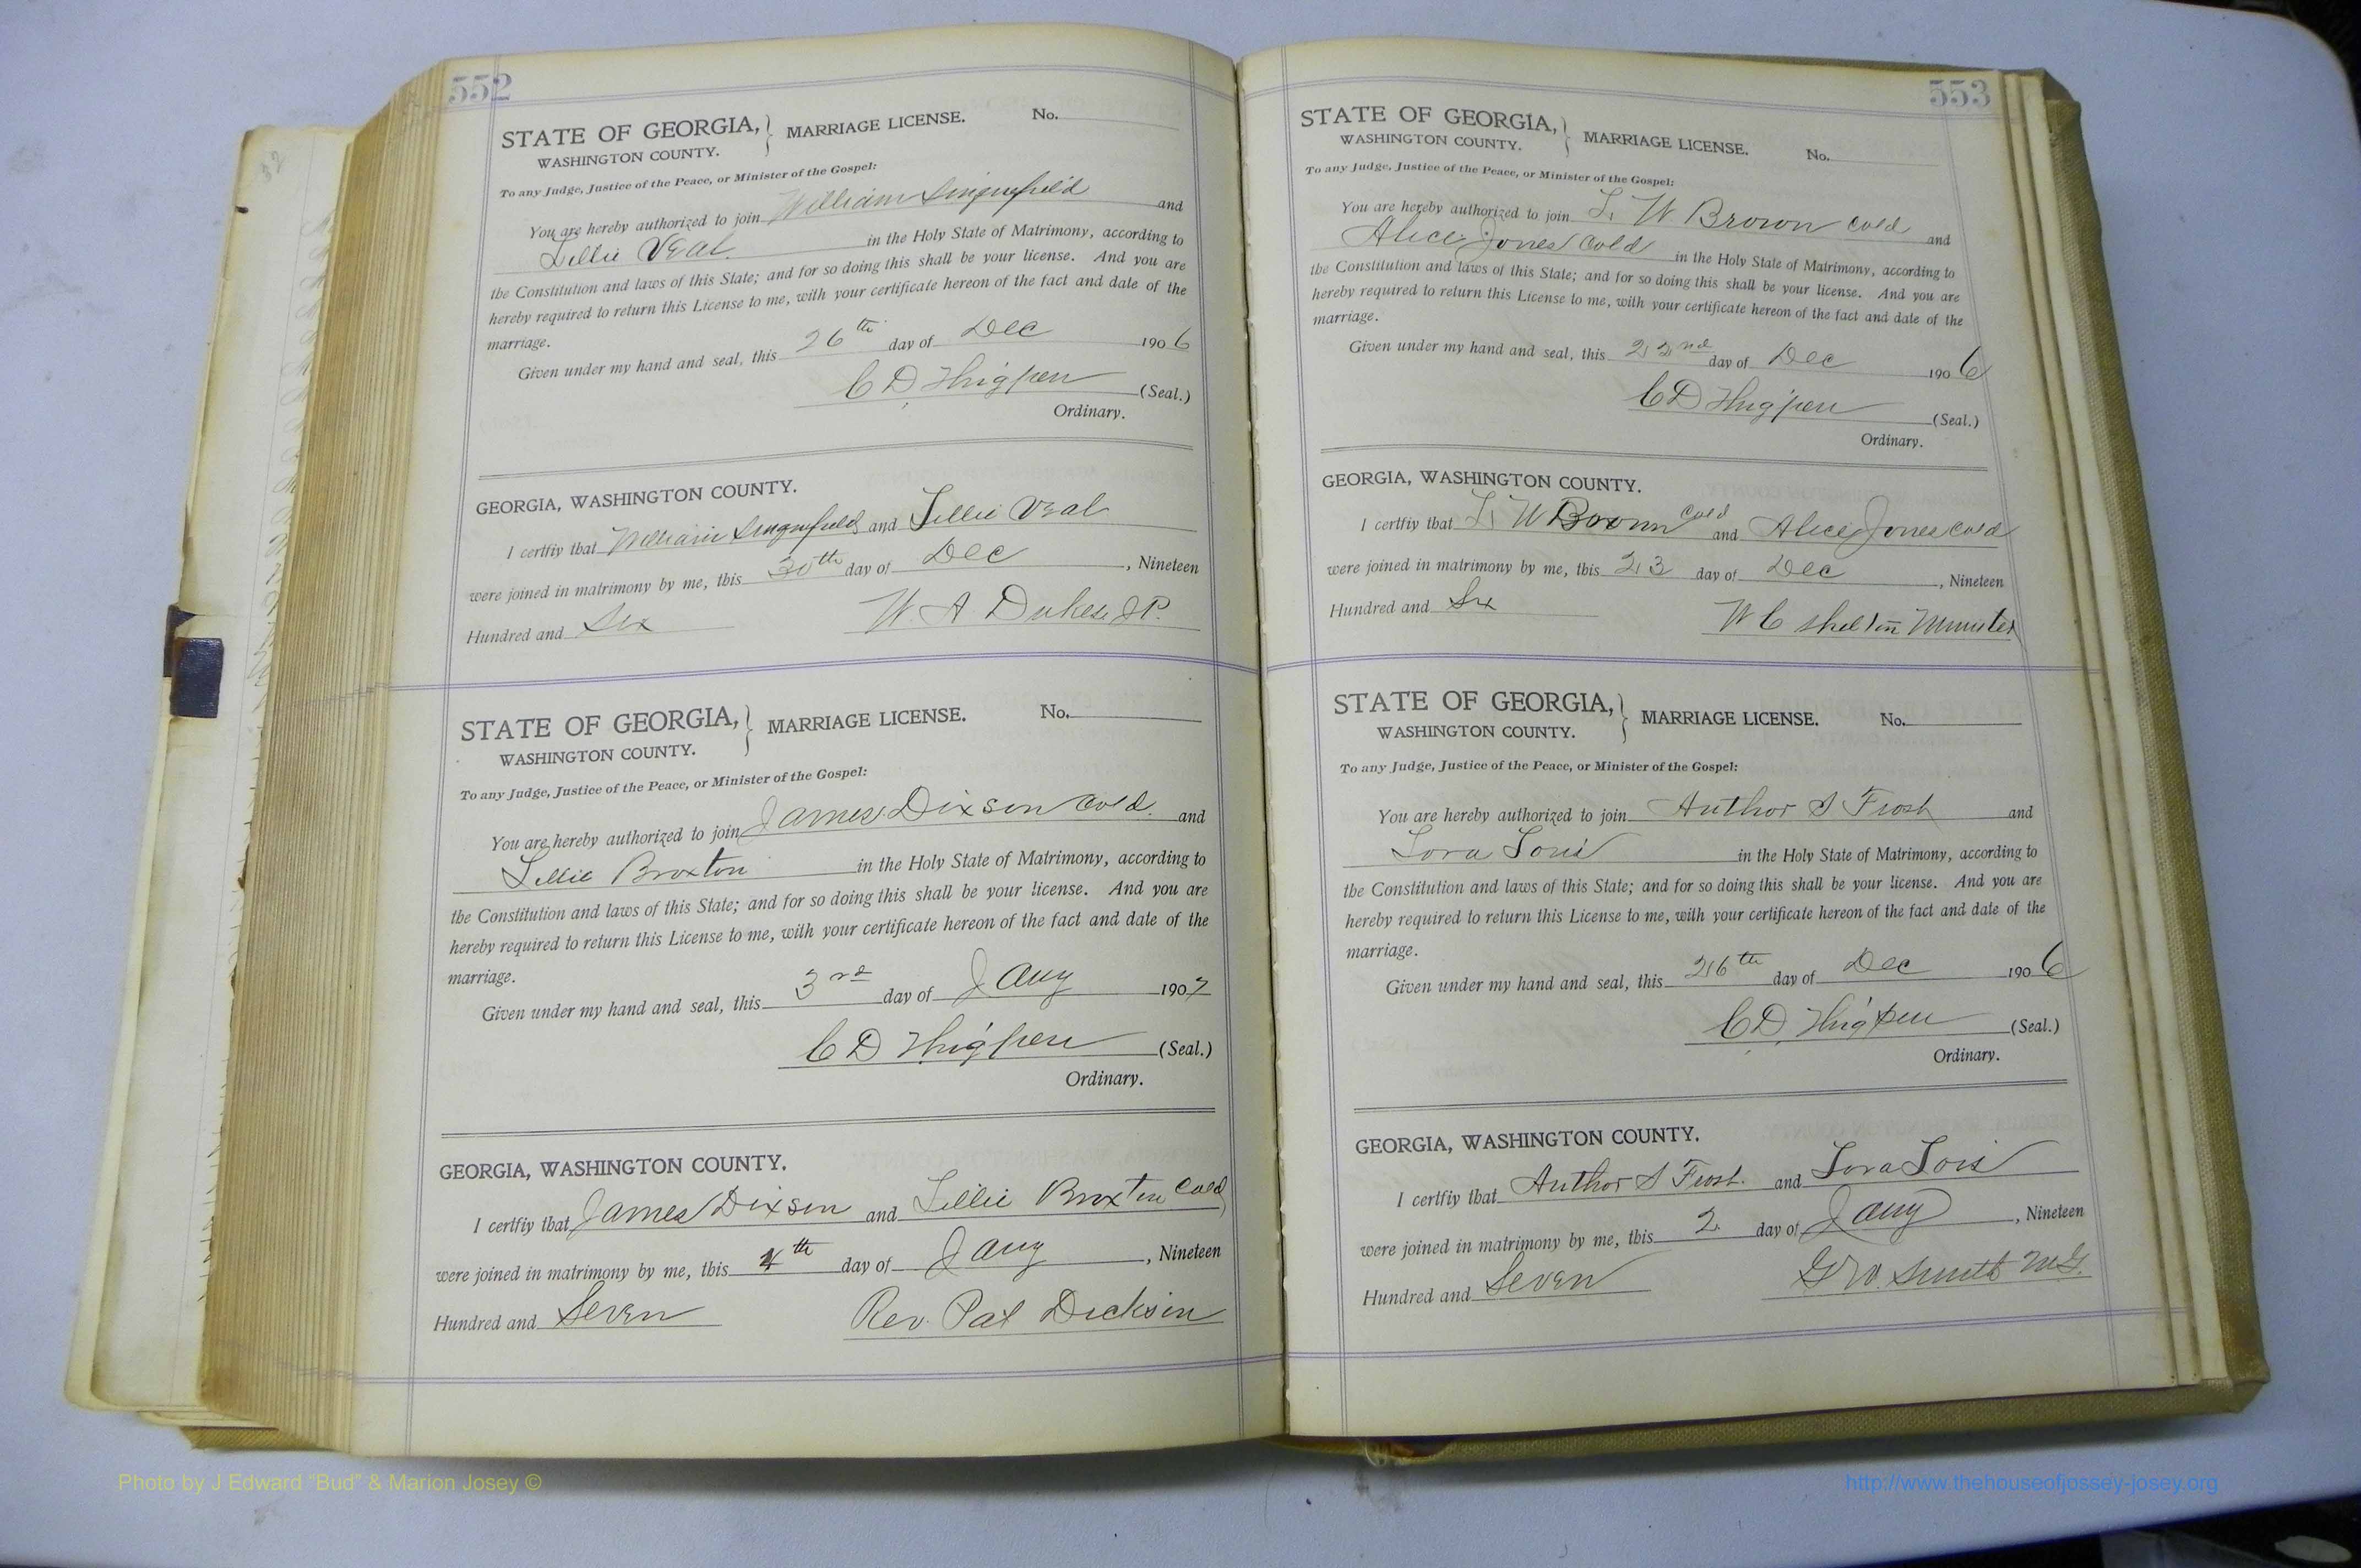 552
STATE OF GEORGIA, } MARRIAGE LICENSE. No.
WASHINGTON COUNTY.
To any Judge, Justice of the Peace, or Minister of the Gospel:
You are hereby authorized to join William and
Lillie Veal in the Holy State of Matrimony, according to
the Constitution and laws of this State; and for so doing this shall be your license. And you are
hereby required to return this License to me, with your certificate hereon of the fact and date of the
marriage.
Given under my hand and seal, this 26th day of Dec 1906
C D Thigpen (Seal.)
Ordinary.
GEORGIA, WASHINGTON COUNTY.
I certfiy that William and Lillie Veal
were joined in matrimony by me, this 30th day of Dec, Nineteen
Hundred and Six W. A Dukes J P.
STATE OF GEORGIA, } MARRIAGE LICENSE. No.
WASHINGTON COUNTY.
To any Judge, Justice of the Peace, or Minister of the Gospel:
You are hereby authorized to join James Dixson Cold. and
Lillie Broxton in the Holy State of Matrimony, according to
the Constitution and laws of this State; and for so doing this shall be your license. And you are
hereby required to return this License to me, with your certificate hereon of the fact and date of the
marriage.
Given under my hand and seal, this 3rd day of Jany 1907
C D Thigpen (Seal.)
Ordinary.
GEORGIA, WASHINGTON COUNTY.
I certfiy that James Dixson and Lillie Broxton Cold
were joined in matrimony by me, this 4th day of Jany, Nineteen
Hundred and Seven Rev. Pat Dickson
553
STATE OF GEORGIA, } MARRIAGE LICENSE. No.
WASHINGTON COUNTY.
To any Judge, Justice of the Peace, or Minister of the Gospel:
You are hereby authorized to join L. W Brown Cold and
Alice Jones Cold in the Holy State of Matrimony, according to
the Constitution and laws of this State; and for so doing this shall be your license. And you are
hereby required to return this License to me, with your certificate hereon of the fact and date of the
marriage.
Given under my hand and seal, this 22nd day of Dec 1906
C D Thigpen (Seal.)
Ordinary.
GEORGIA, WASHINGTON COUNTY.
I certfiy that L. W Brown Cold and Alice Jones Cold
were joined in matrimony by me, this 23 day of Dec, Nineteen
Hundred and Six W C Shelton Minister
STATE OF GEORGIA, } MARRIAGE LICENSE. No.
WASHINGTON COUNTY.
To any Judge, Justice of the Peace, or Minister of the Gospel:
You are hereby authorized to join Author S Frost and
Lora in the Holy State of Matrimony, according to
the Constitution and laws of this State; and for so doing this shall be your license. And you are
hereby required to return this License to me, with your certificate hereon of the fact and date of the
marriage.
Given under my hand and seal, this 26th day of Dec 1906
C D. Thigpen (Seal.)
Ordinary.
GEORGIA, WASHINGTON COUNTY.
I certfiy that Author S Frost. and Lora
were joined in matrimony by me, this 2 day of Jany, Nineteen
Hundred and Seven G W. Smith M G.
Photo by J Edward "Bud" & Marion Josey ©
http://www.thehouseofjossey-josey.org